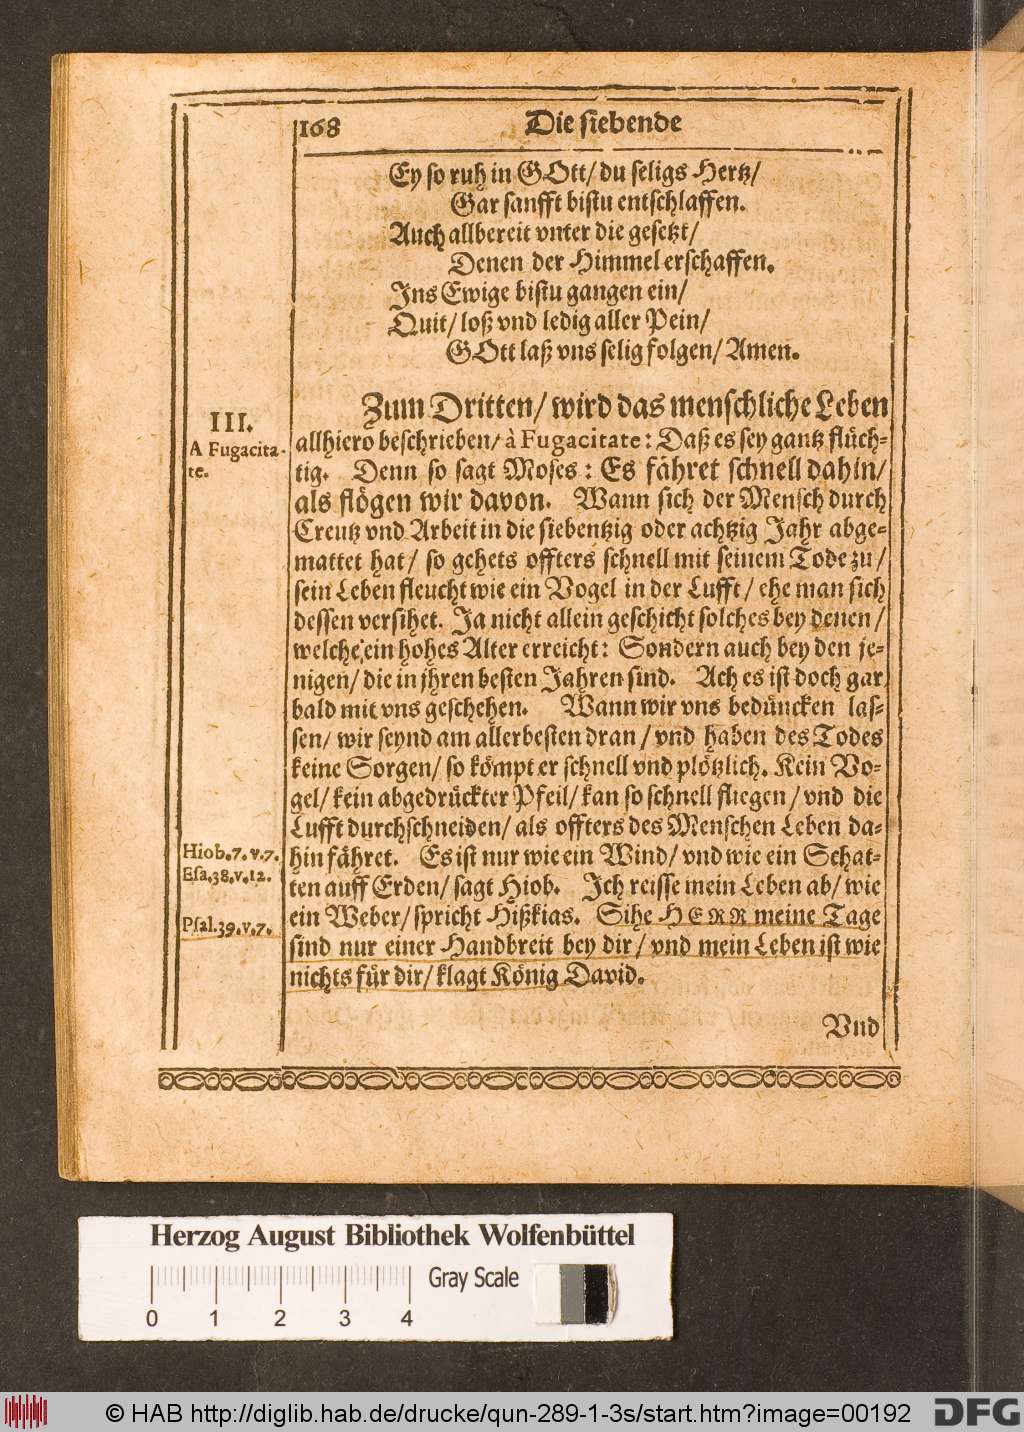 168 Die siebende
Ey so ruh in GOtt/ du seligs Hertz/
Gar sanfft bistu entschlaffen.
Auch allbereit vnter die gesetzt/
Denen der Himmel erschaffen.
Ins Ewige bistu gangen ein/
Quit/ loß vnd ledig aller Pein/
GOtt laß vns selig folgen/ Amen.
III.
A Fugacita-
te.
Zum Dritten/ wird das menschliche Leben
allhiero beschrieben/ à Fugacitate: Daß es sey gantz flüch-
tig. Denn so sagt Moses: Es fähret schnell dahin/
als flögen wir davon. Wann sich der Mensch durch
Creutz vnd Arbeit in die siebentzig oder achtzig Jahr abge-
mattet hat/ so gehets offters schnell mit seinem Tode zu/
sein Leben fleucht wie ein Vogel in der Lufft/ ehe man sich
dessen versihet. Ja nicht allein geschicht solches bey denen/
welche ein hohes Alter erreicht: Sondern auch bey den je-
nigen/ die in jhren besten Jahren sind. Ach es ist doch gar
bald mit vns geschehen. Wann wir vns bedüncken las-
sen/ wir seynd am allerbesten dran/ vnd haben des Todes
keine Sorgen/ so kömpt er schnell vnd plötzlich. Kein Vo-
gel/ kein abgedrückter Pfeil/ kan so schnell fliegen/ vnd die
Lufft durchschneiden/ als offters des Menschen Leben da-
hin fähret. Es ist nur wie ein Wind/ vnd wie ein Schat-
ten auff Erden/ sagt Hiob. Ich reisse mein Leben ab/ wie
ein Weber/ spricht Hißkias. Sihe HERR meine Tage
sind nur einer Handbreit bey dir/ vnd mein Leben ist wie
nichts für dir/ klagt König David.
Hiob.7.v.7.
Esa.38.v.12.
Psal.39.v.7.
Vnd
Herzog August Bibliothek Wolfenbüttel
Gray Scale
0 1 2 3 4
© HAB http://diglib.hab.de/drucke/qun-289-1-3s/start.htm?image=00192
DFG